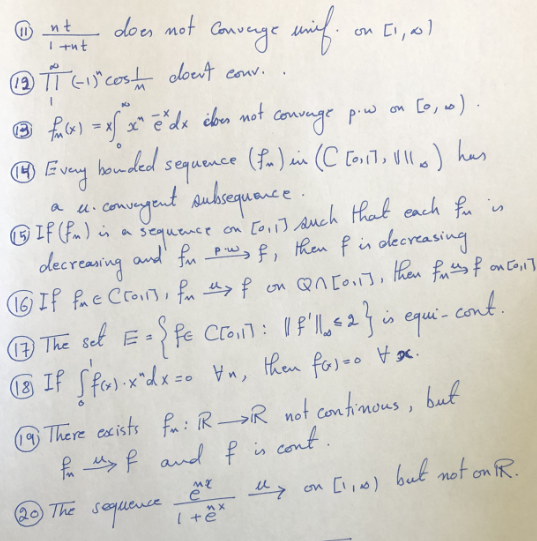 ⑪ nt/(1+nt) does not converge unif. on [1,∞)
⑫ ∞∏1 (-1)ⁿ cos 1/n doesn't conv..
⑬ fₙ(x) = x∫₀^∞ xⁿ e⁻ˣ dx does not converge p.w on [0,∞).
⑭ Every bounded sequence (fₙ) in (C[0,1], ‖‖∞) has
a u. convergent subsequence.
⑮ If (fₙ) is a sequence on [0,1] such that each fₙ is
decreasing and fₙ p.w→ f, then f is decreasing
⑯ If fₙ ∈ C[0,1], fₙ u→ f on Q∩[0,1], then fₙ u→ f on [0,1]
⑰ The set E = {f∈ C[0,1] : ‖f'‖∞ ≤ 2} is equi-cont.
⑱ If ∫₀¹ f(x)·xⁿdx = 0 ∀n, then f(x)=0 ∀x.
⑲ There exists fₙ: ℝ → ℝ not continous, but
fₙ u→ f and f is cont.
⑳ The sequence eⁿˣ/(1+eⁿˣ) u→ on [1,∞) but not on ℝ.